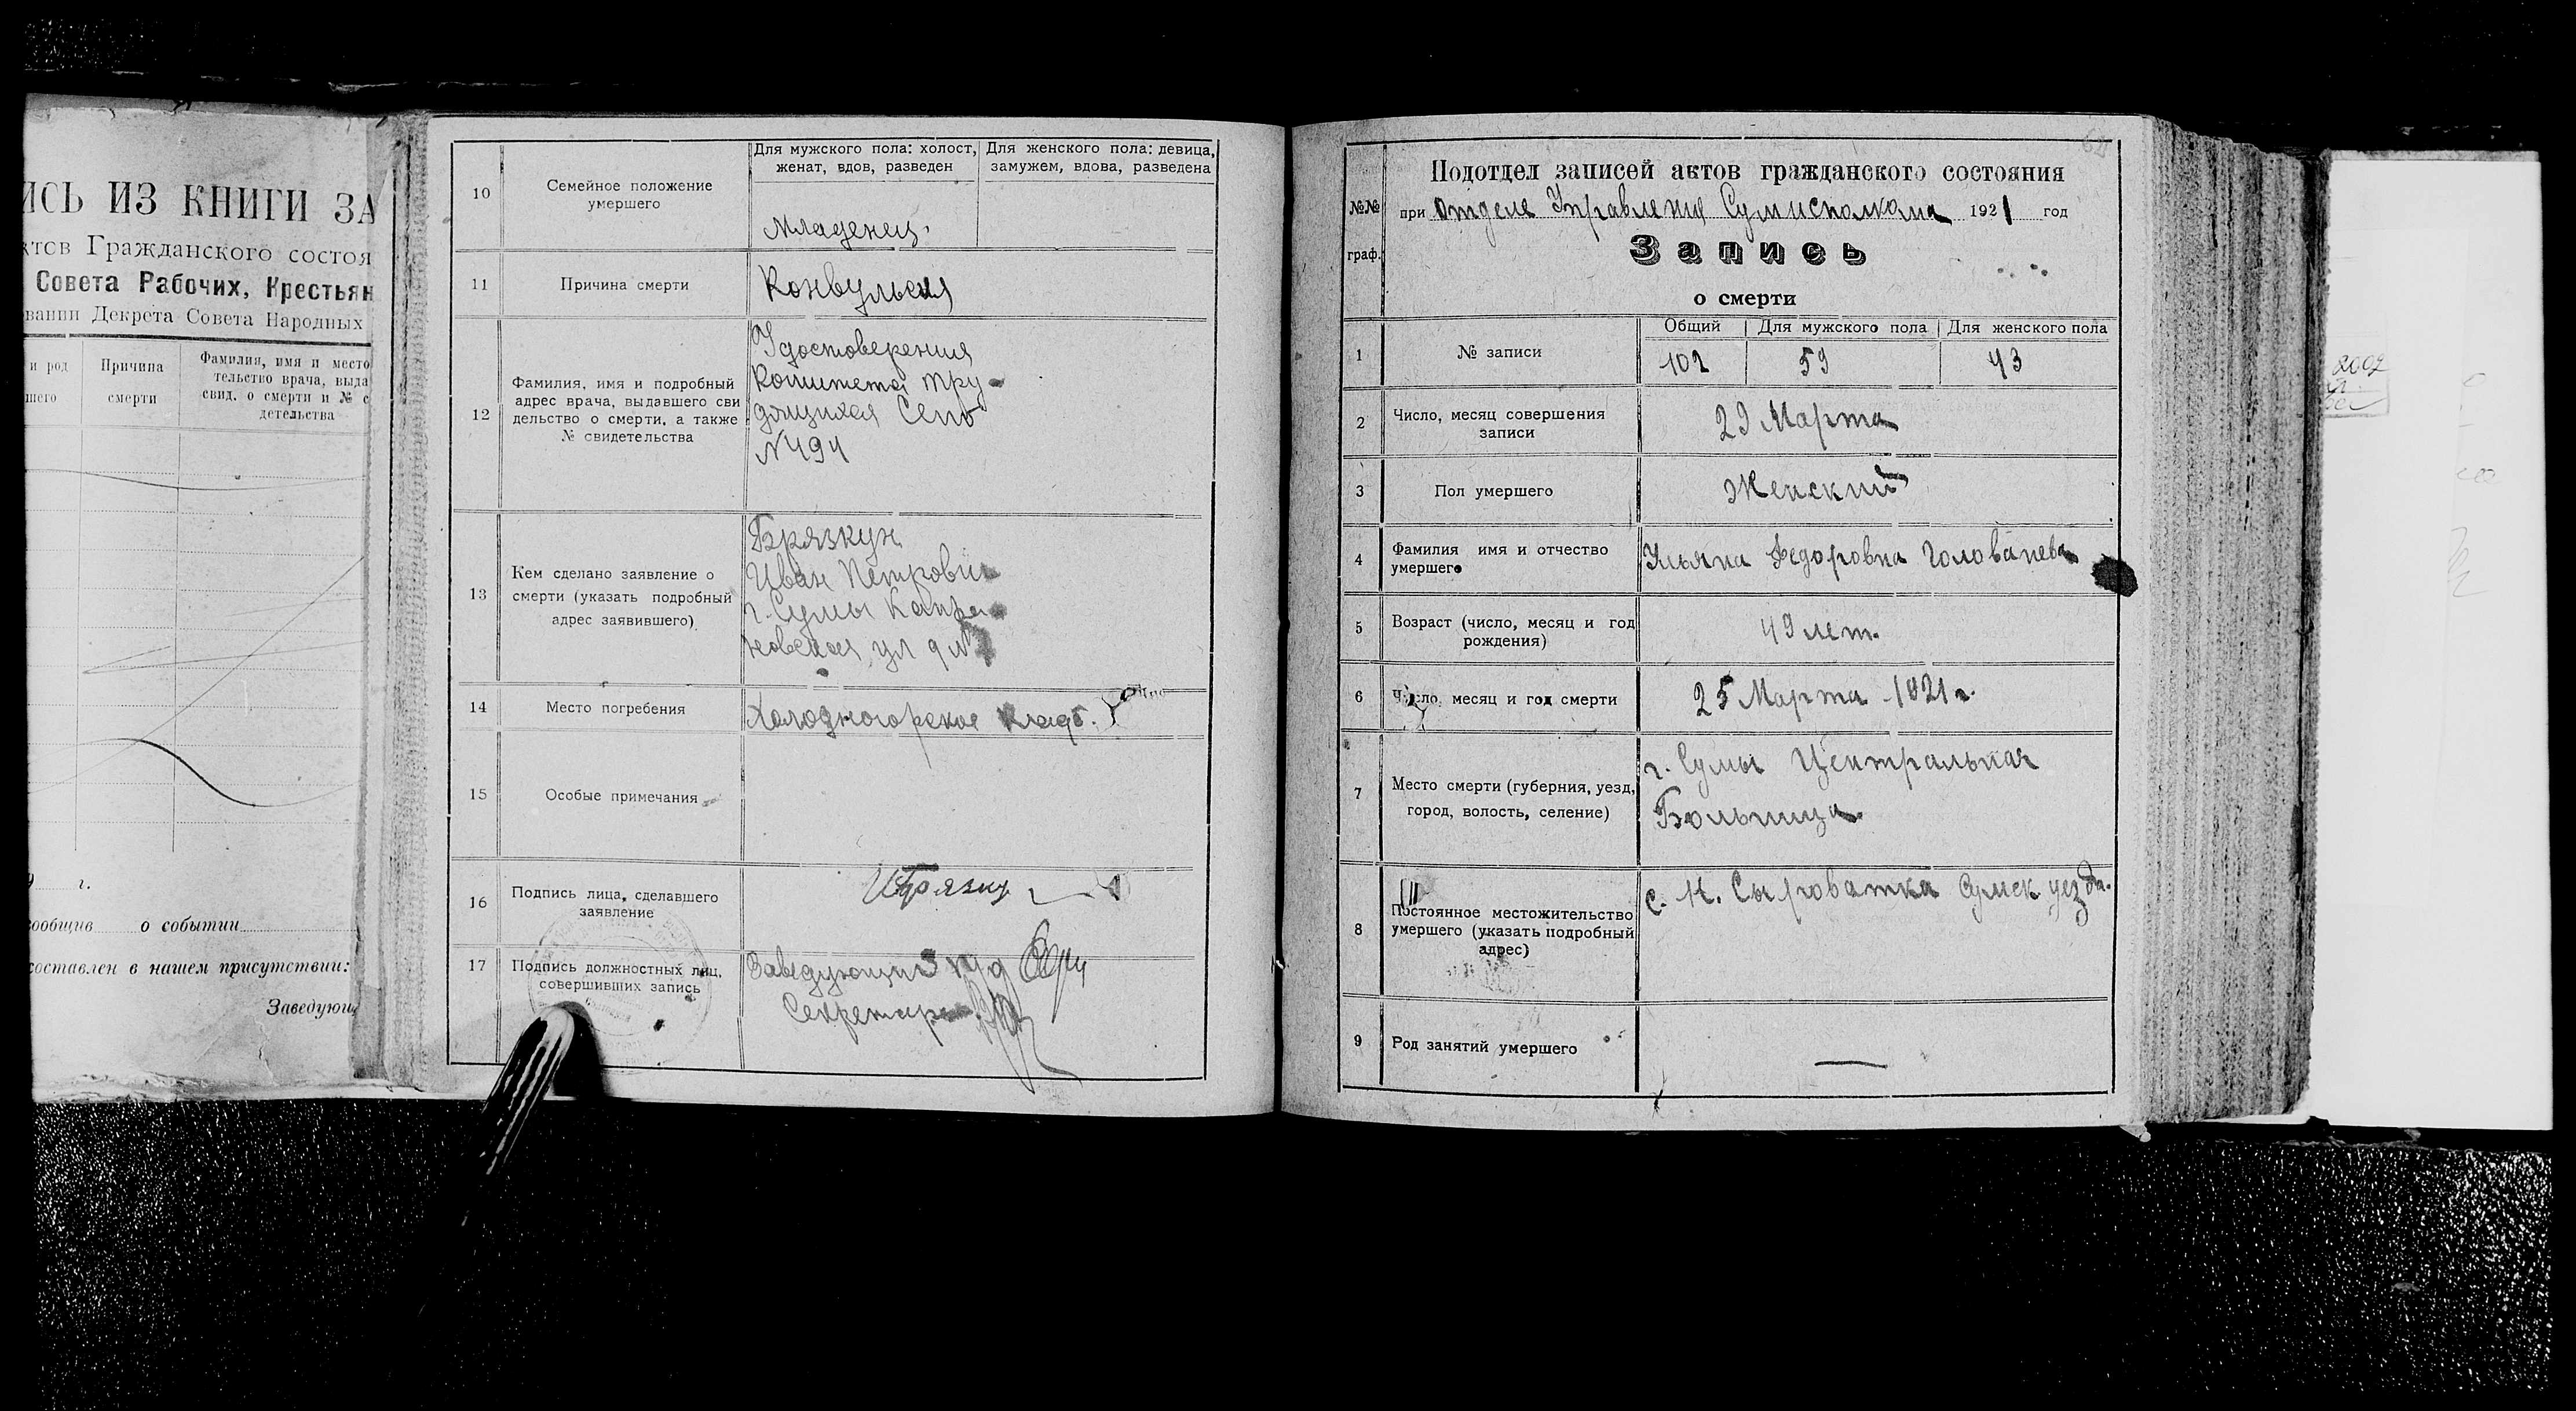 ИСЬ ИЗ КНИГИ ЗА
ктов Гражданского состоя
Совета Рабочих, Крестьян
вании Декрета Совета Народных
и род
шего
Причина
смерти
Фамилия, имя и место
тельство врача, выда
свид. о смерти и № с
детельства
г.
ообщив о событии
составлен в нашем присутствии:
Заведующ
10
Семейное положение
умершего
Для мужского пола: холост,
женат, вдов, разведен
Для женского пола: девица,
замужем, вдова, разведена
Младенец.
11
Причина смерти
Конвульсия
12
Фамилия, имя и подробный
адрес врача, выдавшего сви
дельство о смерти, а также
№ свидетельства
Удостоверения
Комитета тру-
дящихся
N 494
13
Кем сделано заявление о
смерти (указать подробный
адрес заявившего)
Брязкун
Иван Петрович
г. Сумы
новская ул д N
14
Место погребения
Холодногорское кладб.
15
Особые примечания
16
Подпись лица, сделавшего
заявление
17
Подпись должностных лиц,
совершивших запись
Заведующий п/д
Секретарь
№№
граф.
Подотдел записей актов гражданского состояния
при Отделе Управления Сумисполкома 1921 год
Запись
о смерти
1
№ записи
Общий
Для мужского пола
Для женского пола
102
59
43
2
Число, месяц совершения
записи
29 Марта
3
Пол умершего
Женский
4
Фамилия имя и отчество
умершего
Ульяна Федоровна Голованева
5
Возраст (число, месяц и год
рождения)
49 лет.
6
Число, месяц и год смерти
25 Марта 1921 г.
7
Место смерти (губерния, уезд,
город, волость, селение)
г. Сумы Центральная
Больница
8
Постоянное местожительство
умершего (указать подробный
адрес)
с. Н. Сыроватка Сумск уезда.
9
Род занятий умершего
—
2002